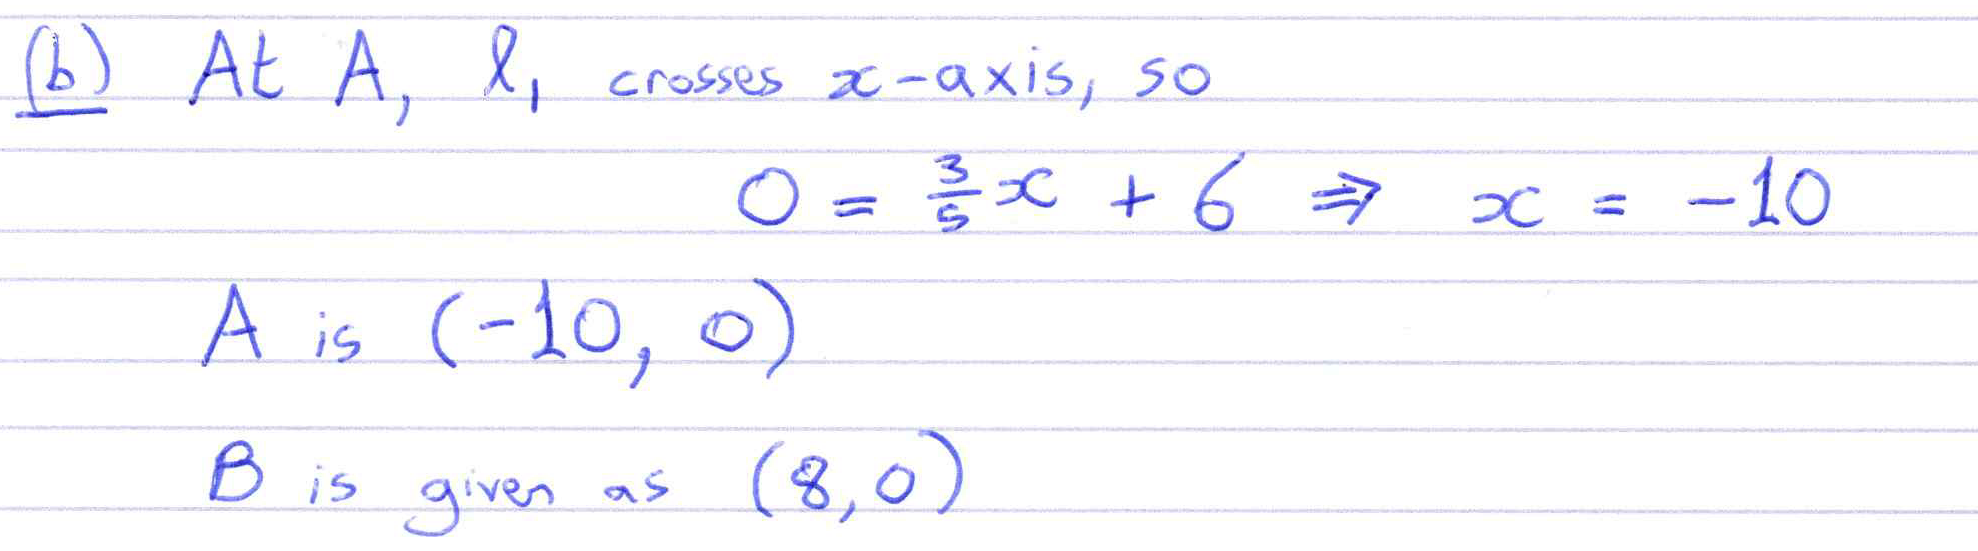 (b) At A, l₁ crosses x-axis, so
0 = 3/5 x + 6 ⇒ x = -10
A is (-10, 0)
B is given as (8,0)